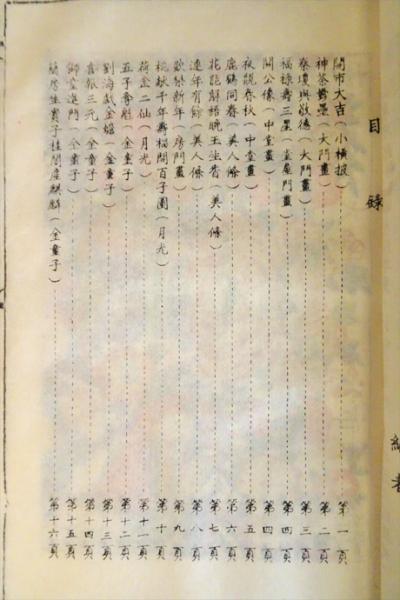 目錄
開市大吉(小橫披)第一頁
神荼鬱壘(大門畫)第二頁
秦瓊與敬德(大門畫)第三頁
福祿壽三星(堂屋門畫)第四頁
關公像(中堂畫)第四頁
夜觀春秋(中堂畫)第五頁
鹿鶴同春(美人條)第六頁
花能解語晚玉生香(美人條)第七頁
連年有餘(美人條)第八頁
歡樂新年(房門畫)第九頁
桃献千年壽榴開百子圖(月光)第十頁
荷盒二仙(月光)第十一頁
五子奪魁(全童子)第十二頁
劉海戲金蟾(全童子)第十三頁
喜報三元(全童子)第十四頁
獅童進門(全童子)第十五頁
蘭房生貴子桂閣產麒麟(全童子)第十六頁
編者